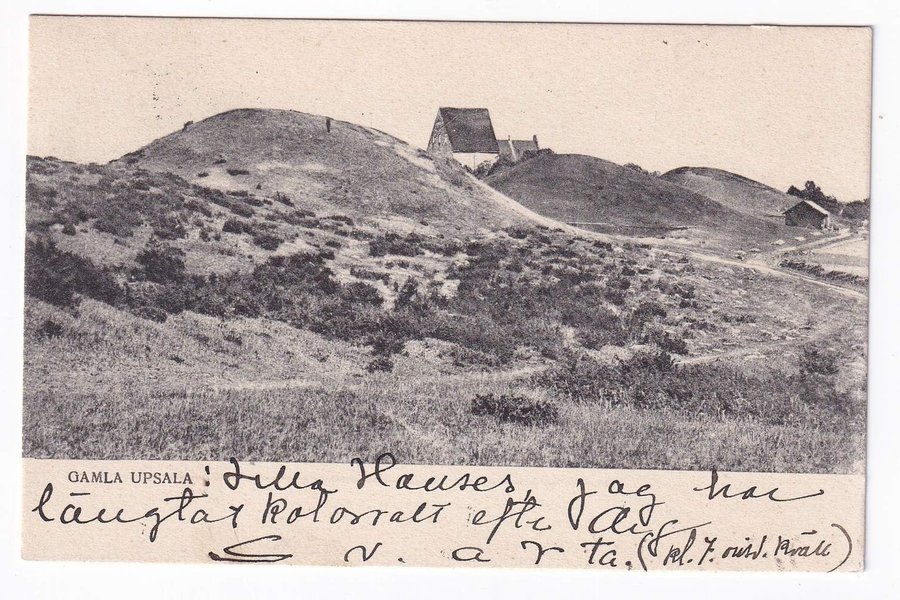 GAMLA UPSALA : Lilla Hauses, jag har
längtat kolossalt efter Dig
S v a r ta. (kl. 7. onsd. kväll)